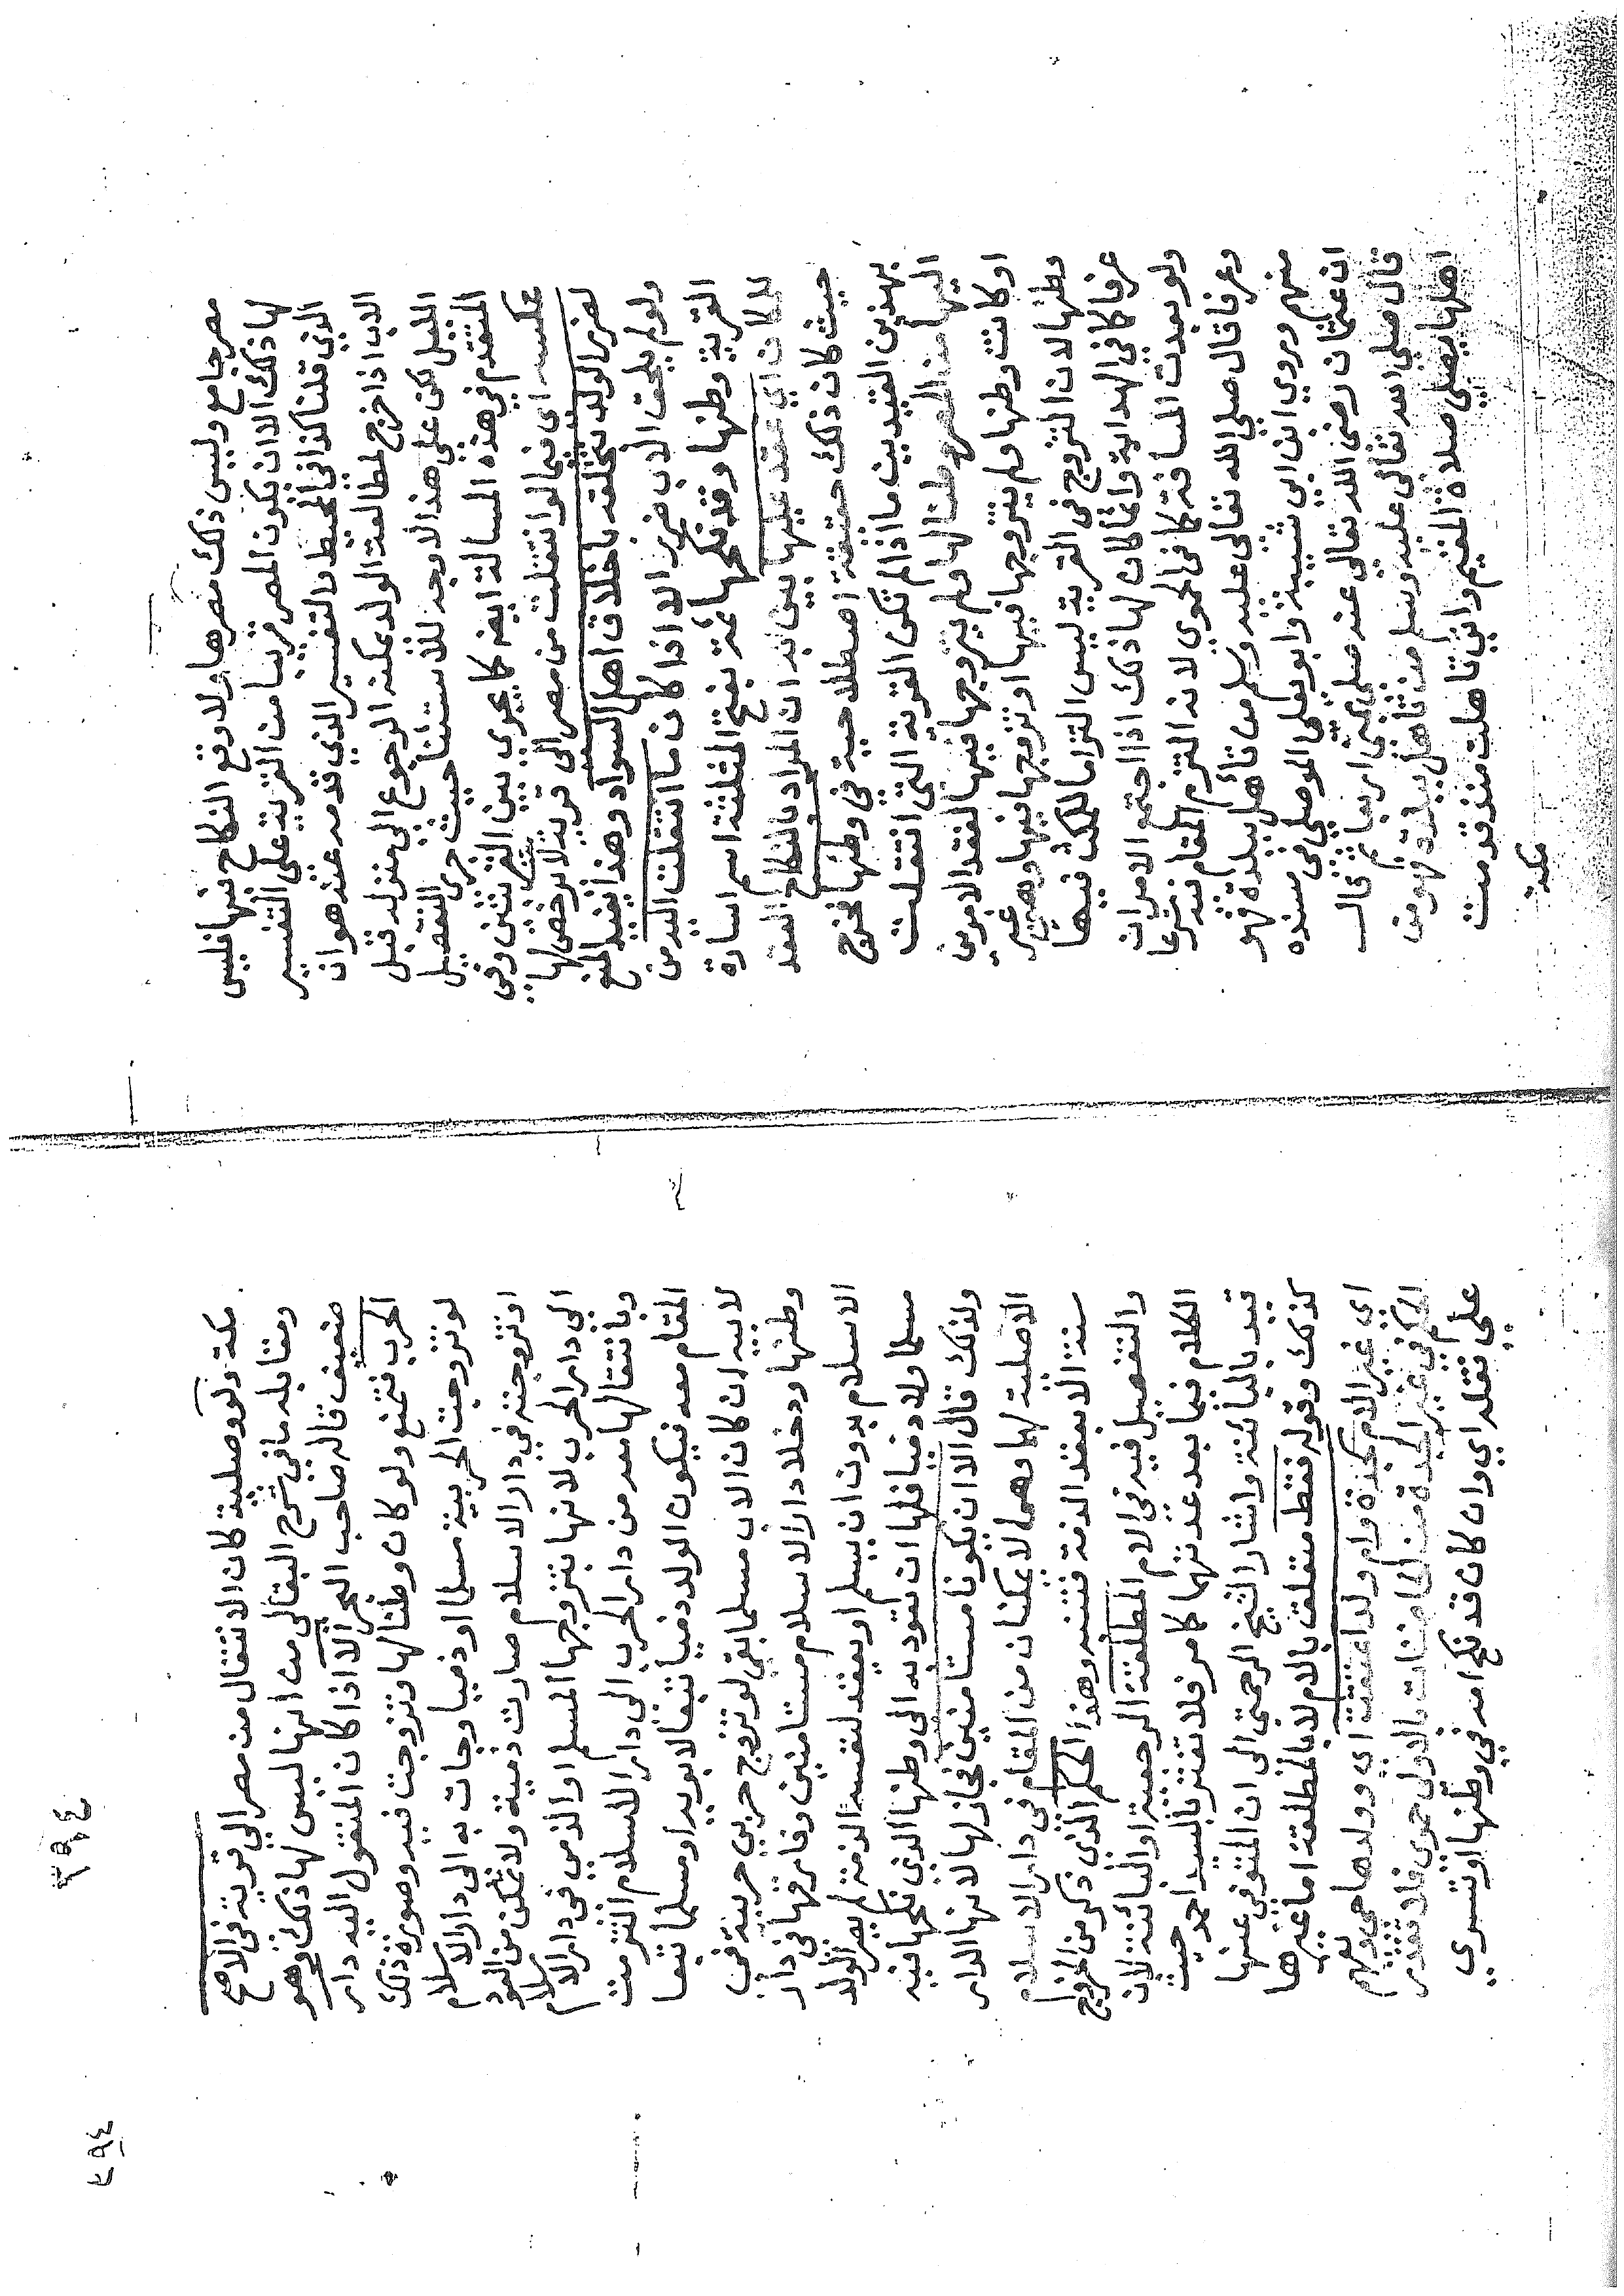 مصر جامع وليس ذلك مصرها ولا وقع النكاح فيها فليس
لها ذلك الا ان يكون المصر قريبا من القرية على التفسير
الذي قلنا كذا في المحيط والتفسير الذي قدمه عنده هو ان
الاب اذا خرج لمطالعة الولد يمكنه الرجوع الى منزله قبل
الليل لكن على هذا لا وجه للاستثنا حيث جرى التفصيل
المتقدم في هذه المسالة ايضا كما يجري بين القريتين وفي
عكسه اي فيما لو انتقلت من مصر الى قرية لا رخص لها
لضرر الولد بتخلقه باخلاق اهل السواد وهذا يفيد المنع
ولو لم يلحق الاب ضرر الا اذا كان ما انتقلت اليه من
القرية وطنها وقد نكحها ثمة بفتح المثلثة اسم اشارة
للمكان اي عقد عليها بين به ان المراد بالنكاح العقد
حيث كان ذلك حقيقة اصطلاحية في وطنها فخرج
بهذين القيدين ما اذا لم تكن القرية التي انتقلت
اليها من المصر وطنا لها ولم يتزوجها فيها لفقد الامرين
او كانت وطنها ولم يتزوجها فيها او تزوجها فيها وهي غير
وطنها لان التزوج في القرية ليس التزاما للمكث فيها
عرفا كما في الهداية وانما كان لها ذلك اذا اجتمع الامران
ولو بعدت المسافة كما في الحموي لانه التزم المقام شرعا
وعرفا قال صلى الله تعالى عليه وسلم من تأهل ببلدة فهو
منهم وروي ابن ابي شيبة وابو يعلى الموصلي في مسنده
ان عثمان رضي الله تعالى عنه صلى بمنى اربعا ثم قال
قال صلى الله تعالى عليه وسلم من تأهل ببلدة فهو من
اهلها يصلي صلاة المقيم واني تأهلت منذ قدمت
مكة
٤٩٤
٤٩٤
مكة ولو وصلية كان الانتقال من مصر الى قرية في الاصح
ومقابله ما في شرح البقالي من انها ليس لها ذلك وهو
ضعيف قاله صاحب البحر الا اذا كان المنقول اليه دار
الحرب فتمنع ولو كان وطنا لها وتزوجت فيه وصورة ذلك
لو تزوجت الحربية مسلما او ذميا وجات به الى دار الاسلام
او تزوجته في دار الاسلام صارت ذمية ولا تمكن من العود
الى دار الحرب لانها بتزوجها المسلم او الذمي في دار الاسلام
وبانتقالها معه من دار الحرب الى دار الاسلام التزمت
المقام معه فيكون الولد ذميا تبعا لابويه او مسلما تبعا
لابيه ان كان الاب مسلما بقي لو تزوج حربي حربية في
وطنها ودخلا دار الاسلام مستامنين وفارقها في دار
الاسلام بدون ان يسلم او يعقد لنفسه الذمة لم يصر الولد
مسلما ولا ذميا فلها ان تعود به الى وطنها الذي نكحها فيه
ولذلك قال الا ان يكونا مستامنين فجاز لها لانها الدار
الاصلية لهما وهما لا يمكنان من المقام في دار الاسلام
سنة الا بعقد الذمة فتثنيه وهذا الحكم الذي ذكر من الخروج
والتفصيل فيه في الام المطلقة الرجعية او البائنة لان
الكلام فيما بعد عدتهما كما مر فلا تغتر بالسيد احمد حيث
قيد بالبائنة واشار الشيخ الرحمتي الى ان المتوفى عنها
كذلك وقوله فقط متعلق بالام لا بالمطلقة اما غيرها
اي غير الام كجدة وام ولد اعتقت اي وولدها حي ويعلم
الحكم في غير الجدة من الحاضنات بالاولى حموي فلا تقدر
على نقله اي وان كان قد نكح امه في وطنها او تسرى